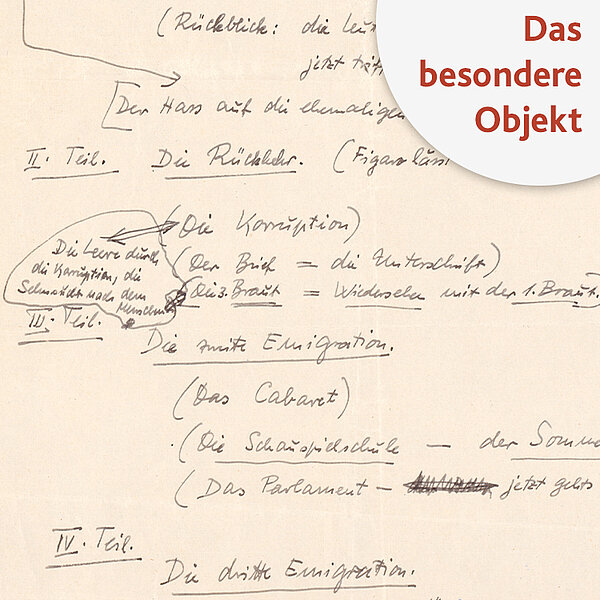 Das
besondere
Objekt
(Rückblick: die
jetzt
[Der Hass auf die ehemaligen
II. Teil. Die Rückkehr. (Figaro lässt
(Die Korruption)
Die Leere durch
die Korruption, die
Sehnsucht nach dem
Menschen
(Der Brief = die Unterschrift)
(Die 3. Braut = Wiedersehen mit der 1. Braut.
III. Teil.
Die zweite Emigration.
(Das Cabaret)
(Die Schauspielschule — der Somme
(Das Parlament — jetzt gehts
IV. Teil.
Die dritte Emigration.